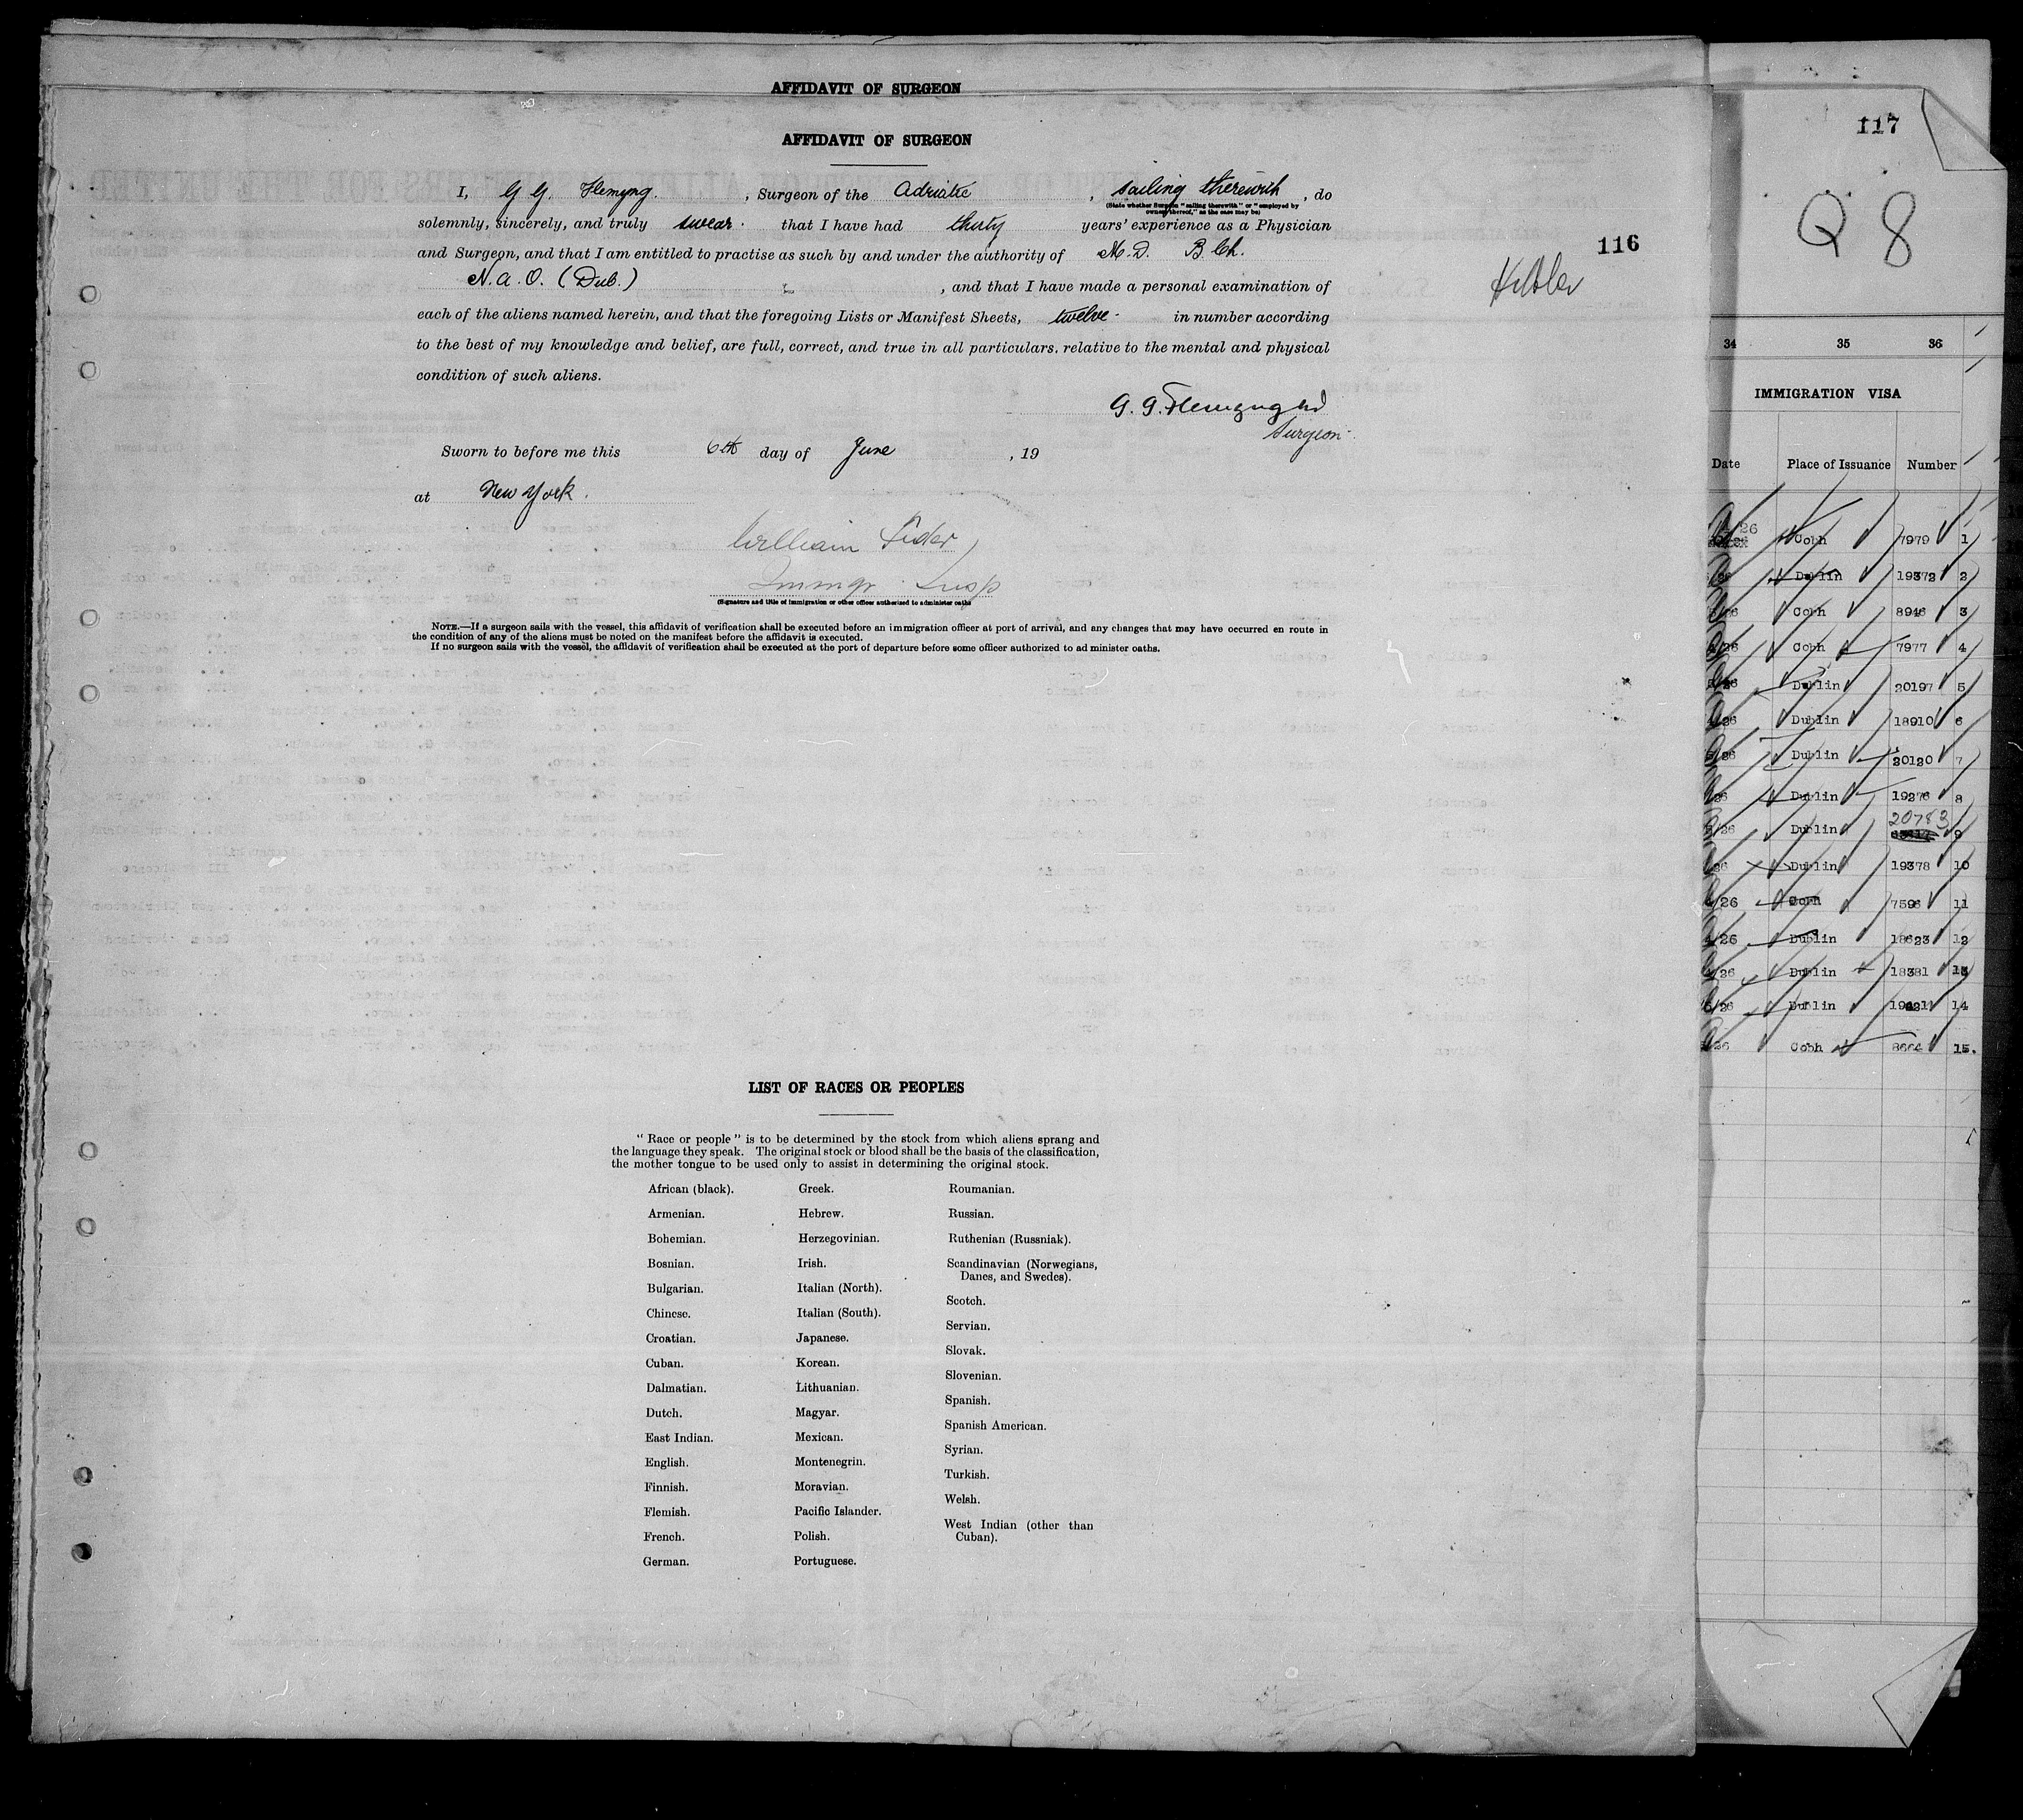 AFFIDAVIT OF SURGEON
AFFIDAVIT OF SURGEON
I, G G. Flemyng. , Surgeon of the Adriatic , sailing therewith , do
(State whether Surgeon "sailing therewith" or "employed by
owners thereof," as the case may be)
solemnly, sincerely, and truly swear. that I have had thirty years' experience as a Physician
and Surgeon, and that I am entitled to practise as such by and under the authority of M.D. B.Ch.
N.A.O. (Dub.) , and that I have made a personal examination of
each of the aliens named herein, and that the foregoing Lists or Manifest Sheets, twelve- in number according
to the best of my knowledge and belief, are full, correct, and true in all particulars, relative to the mental and physical
condition of such aliens.
G. G. Flemyng
Surgeon.
Sworn to before me this 6th day of June , 19
at New York.
William
Immgr. Insp
(Signature and title of immigration or other officer authorized to administer oaths
NOTE.—If a surgeon sails with the vessel, this affidavit of verification shall be executed before an immigration officer at port of arrival, and any changes that may have occurred en route in
the condition of any of the aliens must be noted on the manifest before the affidavit is executed.
If no surgeon sails with the vessel, the affidavit of verification shall be executed at the port of departure before some officer authorized to ad minister oaths.
116
LIST OF RACES OR PEOPLES
"Race or people" is to be determined by the stock from which aliens sprang and
the language they speak. The original stock or blood shall be the basis of the classification,
the mother tongue to be used only to assist in determining the original stock.
African (black).
Armenian.
Bohemian.
Bosnian.
Bulgarian.
Chinese.
Croatian.
Cuban.
Dalmatian.
Dutch.
East Indian.
English.
Finnish.
Flemish.
French.
German.
Greek.
Hebrew.
Herzegovinian.
Irish.
Italian (North).
Italian (South).
Japanese.
Korean.
Lithuanian.
Magyar.
Mexican.
Montenegrin.
Moravian.
Pacific Islander.
Polish.
Portuguese.
Roumanian.
Russian.
Ruthenian (Russniak).
Scandinavian (Norwegians,
Danes, and Swedes).
Scotch.
Servian.
Slovak.
Slovenian.
Spanish.
Spanish American.
Syrian.
Turkish.
Welsh.
West Indian (other than
Cuban).
117
Q 8
34 35 36
IMMIGRATION VISA
Date Place of Issuance Number
26 Cobh 7979 1
26 Dublin 19372 2
26 Cobh 8946 3
26 Cobh 7977 4
26 Dublin 20197 5
26 Dublin 18910 6
26 Dublin 20120 7
26 Dublin 19276 8
26 Dublin 20783 9
26 Dublin 19378 10
26 Cobh 7596 11
26 Dublin 18623 12
26 Dublin 18381 13
26 Dublin 14
26 Cobh 8664 15.